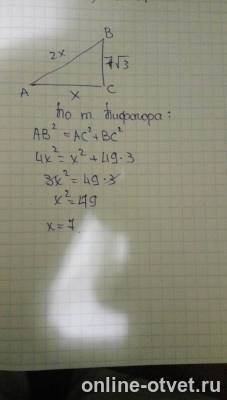 B
2x
7√3
A
x
C
По т. Пифагора:
AB² = AC² + BC²
4x² = x² + 49·3
3x² = 49·3
x² = 49
x = 7.
online-otvet.ru